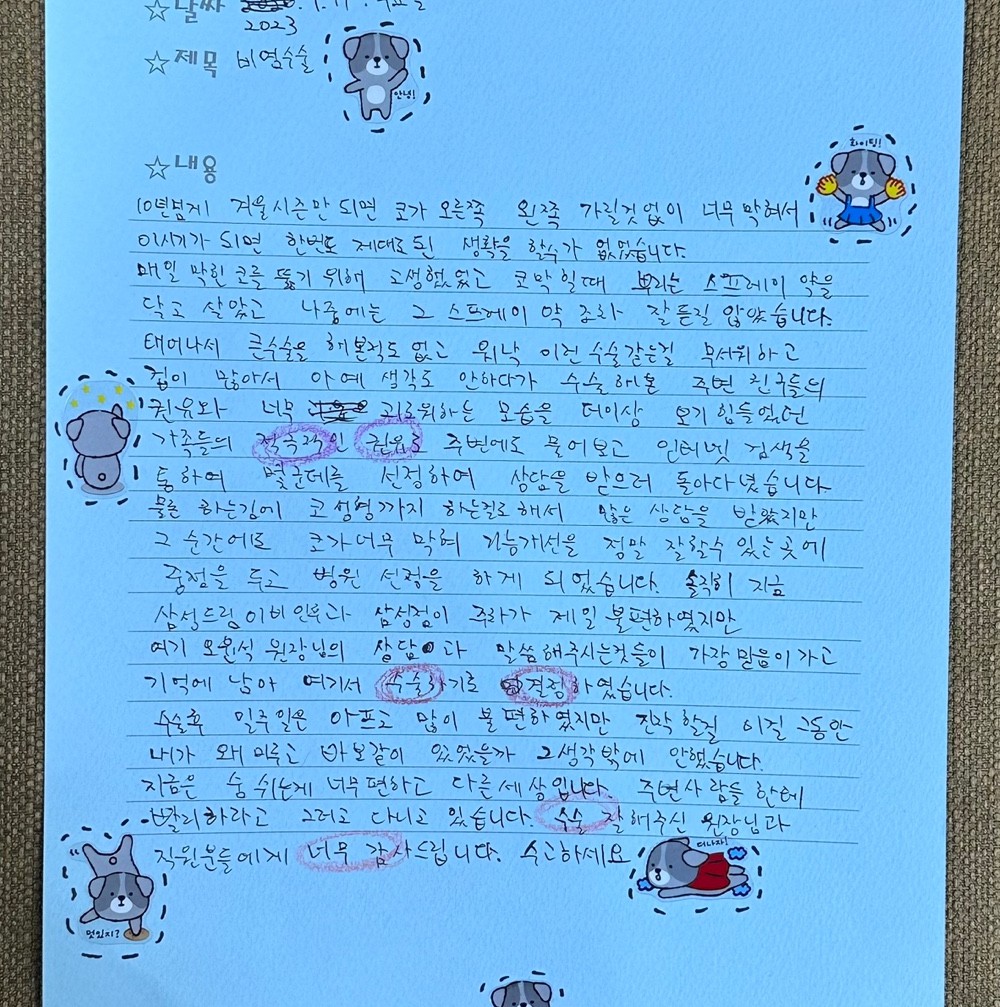 ☆날짜
2023
☆제목 비염수술
안녕!
화이팅!
☆내용
10년넘게 겨울시즌만 되면 코가 오른쪽 왼쪽 가릴것 없이 너무 막혀서
이시기가 되면 한번도 제대로된 생활을 할수가 없었습니다.
매일 막힌 코를 뚫기 위해 고생했었고 코막힐때 뿌리는 스프레이 약을
달고 살았고 나중에는 그 스프레이 약 조차 잘 듣질 않았습니다.
태어나서 큰수술을 해본적도 없고 워낙 이런 수술같은걸 무서워하고
겁이 많아서 아예 생각도 안하다가 수술해본 주변 친구들의
권유와 너무 괴로워하는 모습을 더이상 보기 힘들었던
가족들의 적극적인 권유로 주변에도 물어보고 인터넷 검색을
통하여 몇군데를 선정하여 상담을 받으러 돌아다녔습니다.
물론 하는김에 코성형까지 하는걸로해서 많은 상담을 받았지만
그 순간에도 코가너무 막혀 기능개선을 정말 잘할수 있는곳에
중점을 두고 병원 선정을 하게 되었습니다. 솔직히 지금
삼성드림이비인후과 삼성점이 주차가 제일 불편하였지만
여기 오온석 원장님의 상담과 말씀해주시는것들이 가장믿음이가고
기억에 남아 여기서 수술하기로 결정하였습니다.
수술후 일주일은 아프고 많이 불편하였지만 진작할걸 이걸 그동안
내가 왜 미루고 바보같이 있었을까 그생각밖에 안했습니다.
지금은 숨 쉬는게 너무편하고 다른세상입니다. 주변사람들 한테
빨리하라고 그러고 다니고 있습니다. 수술 잘해주신 원장님과
직원분들에게 너무 감사드립니다. 수고하세요
떠나자!
멋있지?